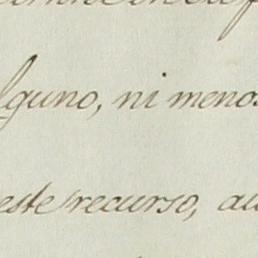 lguno, ni menos
este recurso, au